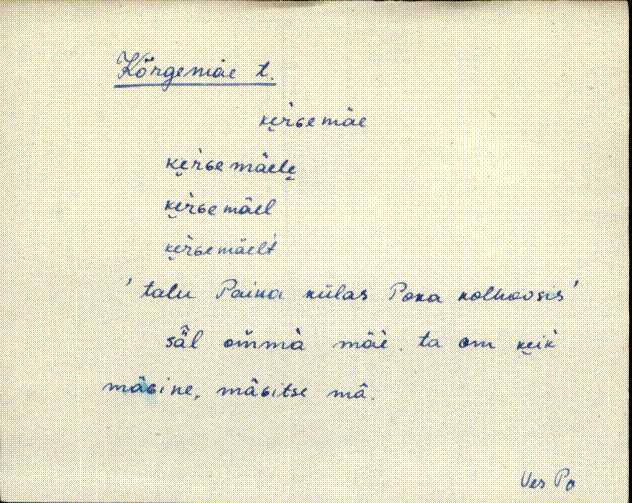 Kõrgemäe t.
ke̮rɢemäe
ke̮rɢemäele̮
ke̮rɢemäel
ke̮rɢemäelt
'talu Paina külas Poka kolhoosis'
sǟl om̀mà mäè. ta om ke̮ik
mäɢine, mäɢitse mā.
Ves Po